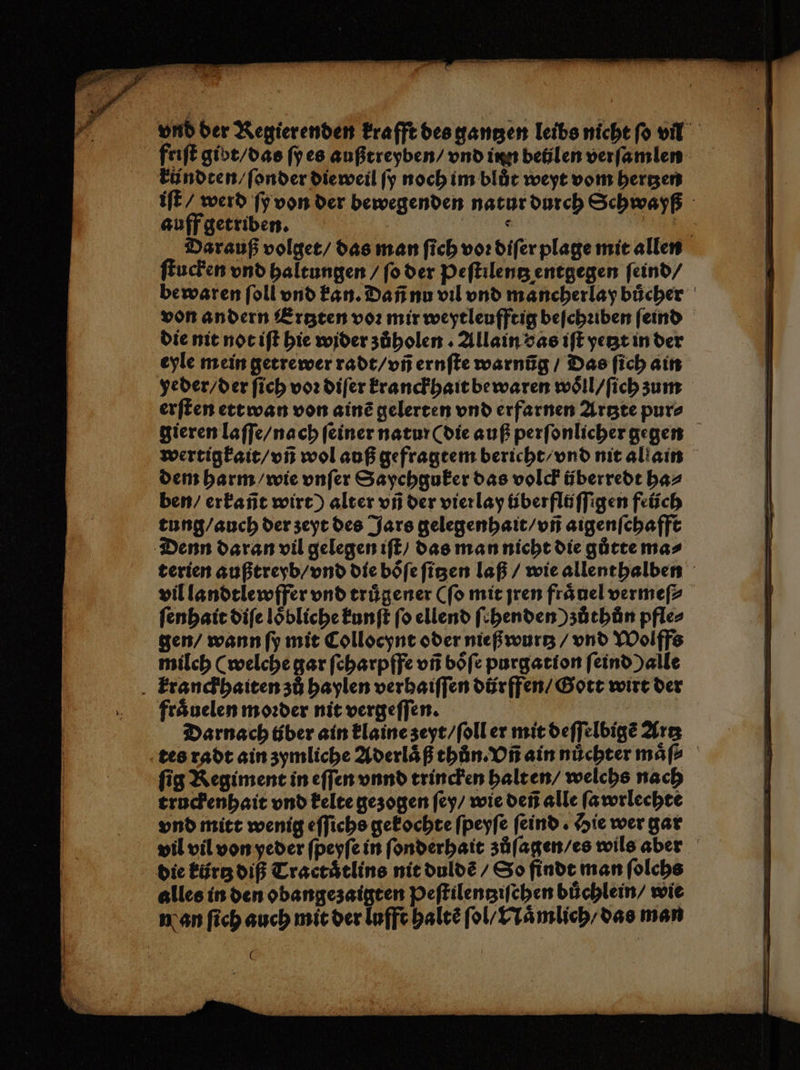 vnd der Regierenden krafft des gantzen leibs nicht ſo vil
friſt gibt/das ſy es außtreyben/ vnd inn beülen verſamlen
kündten/ſonder dieweil ſy noch im blůt weyt vom hertzen
iſt/ werd ſy von der bewegenden natur durch Schwayß
auff getriben.
Darauß volget/ das man ſich voꝛ diſer plage mit allen
ſtucken vnd haltungen / ſo der Peſtilentz entgegen ſeind/
bewaren ſoll vnd kan. Dañ nu vil vnd mancherlay bůcher
von andern Ertzten voꝛ mir weytleufftig beſchꝛiben ſeind
die nit not iſt hie wider zůholen. Allain das iſt yetzt in der
eyle mein getrewer radt/vñ ernſte warnũg / Das ſich ain
yeder/der ſich voꝛ diſer kranckhait bewaren wôll/ſich zum
erſten ettwan von ainẽ gelerten vnd erfarnen Artzte pur⸗
gieren laſſe/nach ſeiner natur (die auß perſonlicher gegen
wertigkait/vñ wol auß gefragtem bericht/vnd nit allain
dem harm/wie vnſer Saychguker das volck überredt ha⸗
ben/ erkañt wirt) alter vñ der vierlay überflüſſigen feüch
tung/auch der zeyt des Jars gelegenhait/vñ aigenſchafft
Denn daran vil gelegen iſt/ das man nicht die gůtte ma⸗
terien außtreyb/vnd die bôſe ſitzen laß / wie allenthalben
vil landtlewffer vnd trůgener (ſo mit jren fråuel vermeſ⸗
ſenhait diſe lôbliche kunſt ſo ellend ſchenden) zůthůn pfle⸗
gen/ wann ſy mit Collocynt oder nießwurtz / vnd Wolffs
milch (welche gar ſcharpffe vñ bôſe purgation ſeind) alle
kranckhaiten zů haylen verhaiſſen dürffen/Gott wirt der
fråuelen moꝛder nit vergeſſen.
Darnach über ain klaine zeyt/ſoll er mit deſſelbigẽ Artz
tes radt ain zymliche Aderlåß thůn. Vñ ain nůchter måſ⸗
ſig Regiment in eſſen vnnd trincken halten/ welchs nach
truckenhait vnd kelte gezogen ſey/ wie deñ alle ſawrlechte
vnd mitt wenig eſſichs gekochte ſpeyſe ſeind. Hie wer gar
vil vil von yeder ſpeyſe in ſonderhait zůſagen/es wils aber
die kürtz diß Tractåtlins nit duldẽ / So findt man ſolchs
alles in den obangezaigten Peſtilentziſchen bůchlein/ wie
man ſich auch mit der lufft haltẽ ſol/Nåmlich/das man